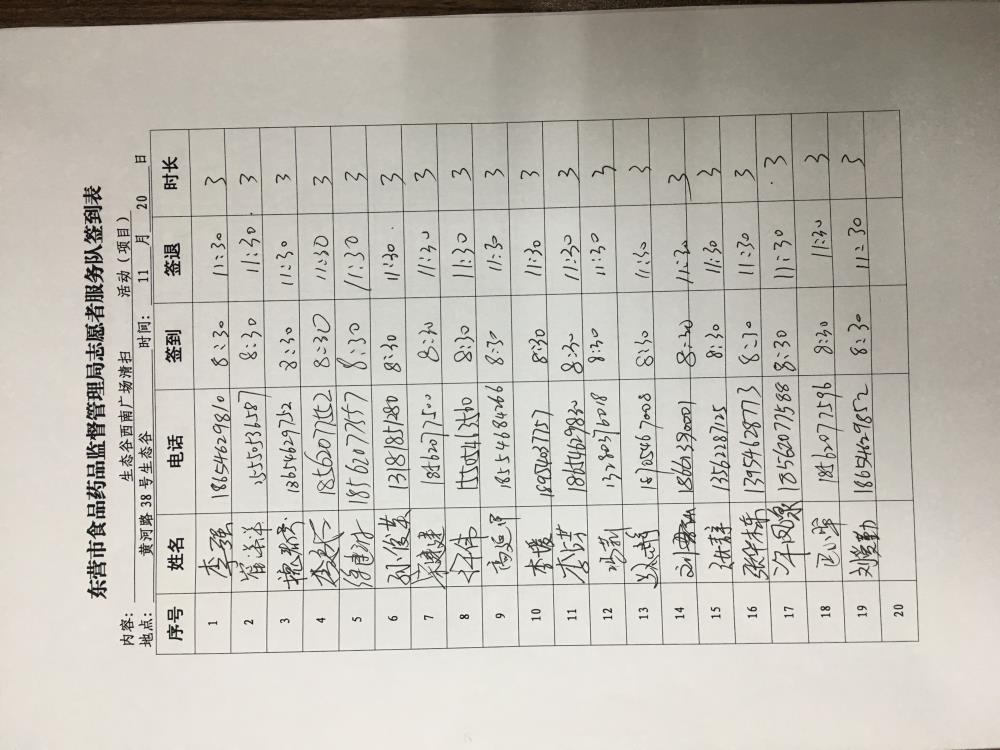 东营市食品药品监督管理局志愿者服务队签到表
内容: 生态谷西南广场清扫 活动（项目）
地点: 黄河路 38 号生态谷 时间: 11 月 20 日
序号 姓名 电话 签到 签退 时长
1 李强 18654629810 8:30 11:30 3
2 15550536587 8:30 11:30 3
3 18654629752 8:30 11:30 3
4 18562077552 8:30 11:30 3
5 18562077557 8:30 11:30 3
6 孙俊英 13181851280 8:30 11:30 3
7 18562077500 8:30 11:30 3
8 15505413560 8:30 11:30 3
9 18554684266 8:30 11:30 3
10 李媛 18954037757 8:30 11:30 3
11 18654629830 8:30 11:30 3
12 13280376018 8:30 11:30 3
13 18705467008 8:30 11:30 3
14 18661390001 8:30 11:30 3
15 13562287125 8:30 11:30 3
16 13954628773 8:30 11:30 3
17 18562077588 8:30 11:30 3
18 18562077596 8:30 11:30 3
19 刘爱勤 18654629852 8:30 11:30 3
20